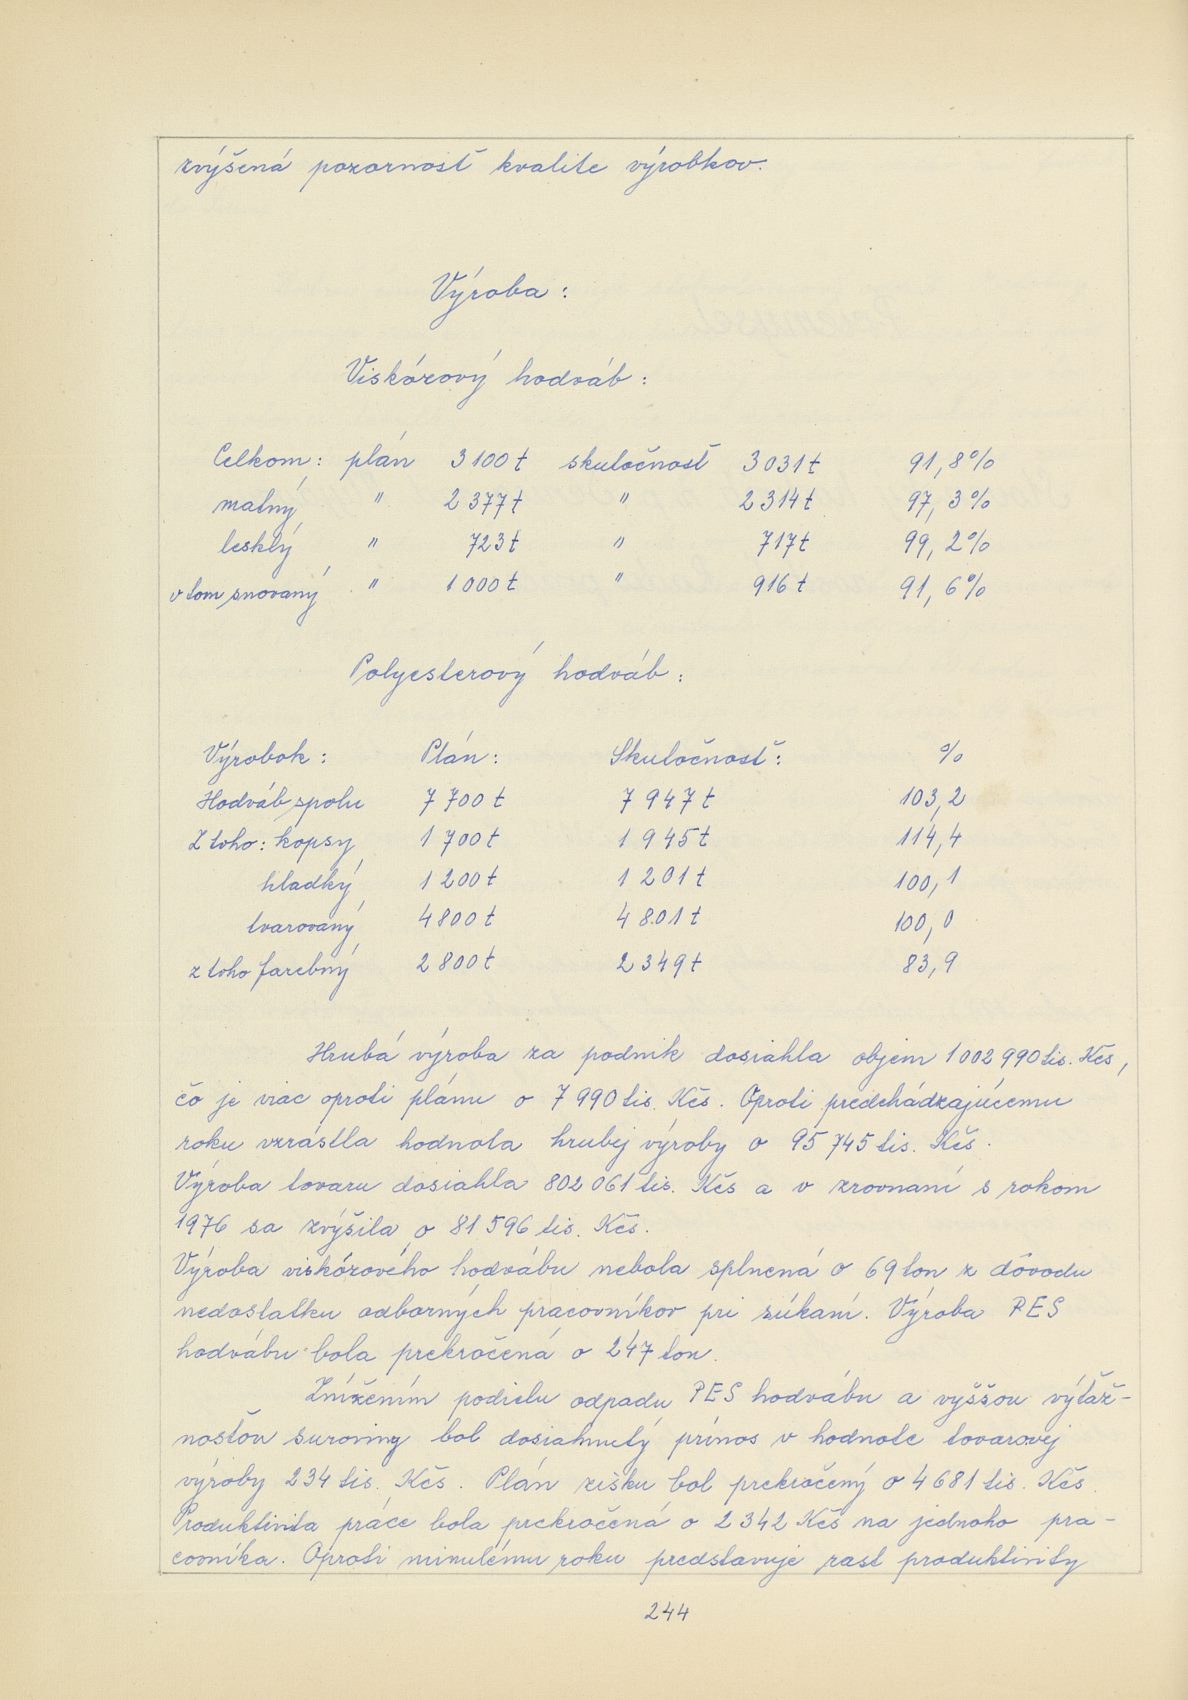 zvýšená pozornosť kvalite výrobkov.
Výroba :
Viskózový hodváb :
Celkom : plán 3 100 t skutočnosť 3 031 t 91, 8 %
matný " 2 377 t " 2 314 t 97, 3 %
lesklý " 723 t " 717 t 99, 2 %
v tom snovaný " 1 000 t " 916 t 91, 6 %
Polyesterový hodváb :
Výrobok : Plán : Skutočnosť : %
Hodváb spolu 7 700 t 7 947 t 103,2
Z toho : kopsy 1 700 t 1 945 t 114,4
hladký 1 200 t 1 201 t 100,1
tvarovaný 4 800 t 4 801 t 100,0
z toho farebný 2 800 t 2 349 t 83,9
Hrubá výroba za podnik dosiahla objem 1 002 990 tis. Kčs,
čo je viac oproti plánu o 7 990 tis. Kčs. Oproti predchádzajúcemu
roku vzrástla hodnota hrubej výroby o 95 745 tis. Kčs.
Výroba tovaru dosiahla 802 061 tis. Kčs a v zrovnaní s rokom
1976 sa zvýšila o 81 596 tis. Kčs.
Výroba viskózového hodvábu nebola splnená o 69 ton z dôvodu
nedostatku odborných pracovníkov pri súkaní. Výroba PES
hodvábu bola prekročená o 247 ton.
Znížením podielu odpadu PES hodvábu a vyššou výťaž-
nosťou suroviny bol dosiahnutý prínos v hodnote tovarovej
výroby 234 tis. Kčs. Plán zisku bol prekročený o 4 681 tis. Kčs.
Produktivita práce bola prekročená o 2 342 Kčs na jednoho pra-
covníka. Oproti minulému roku predstavuje rast produktivity
244